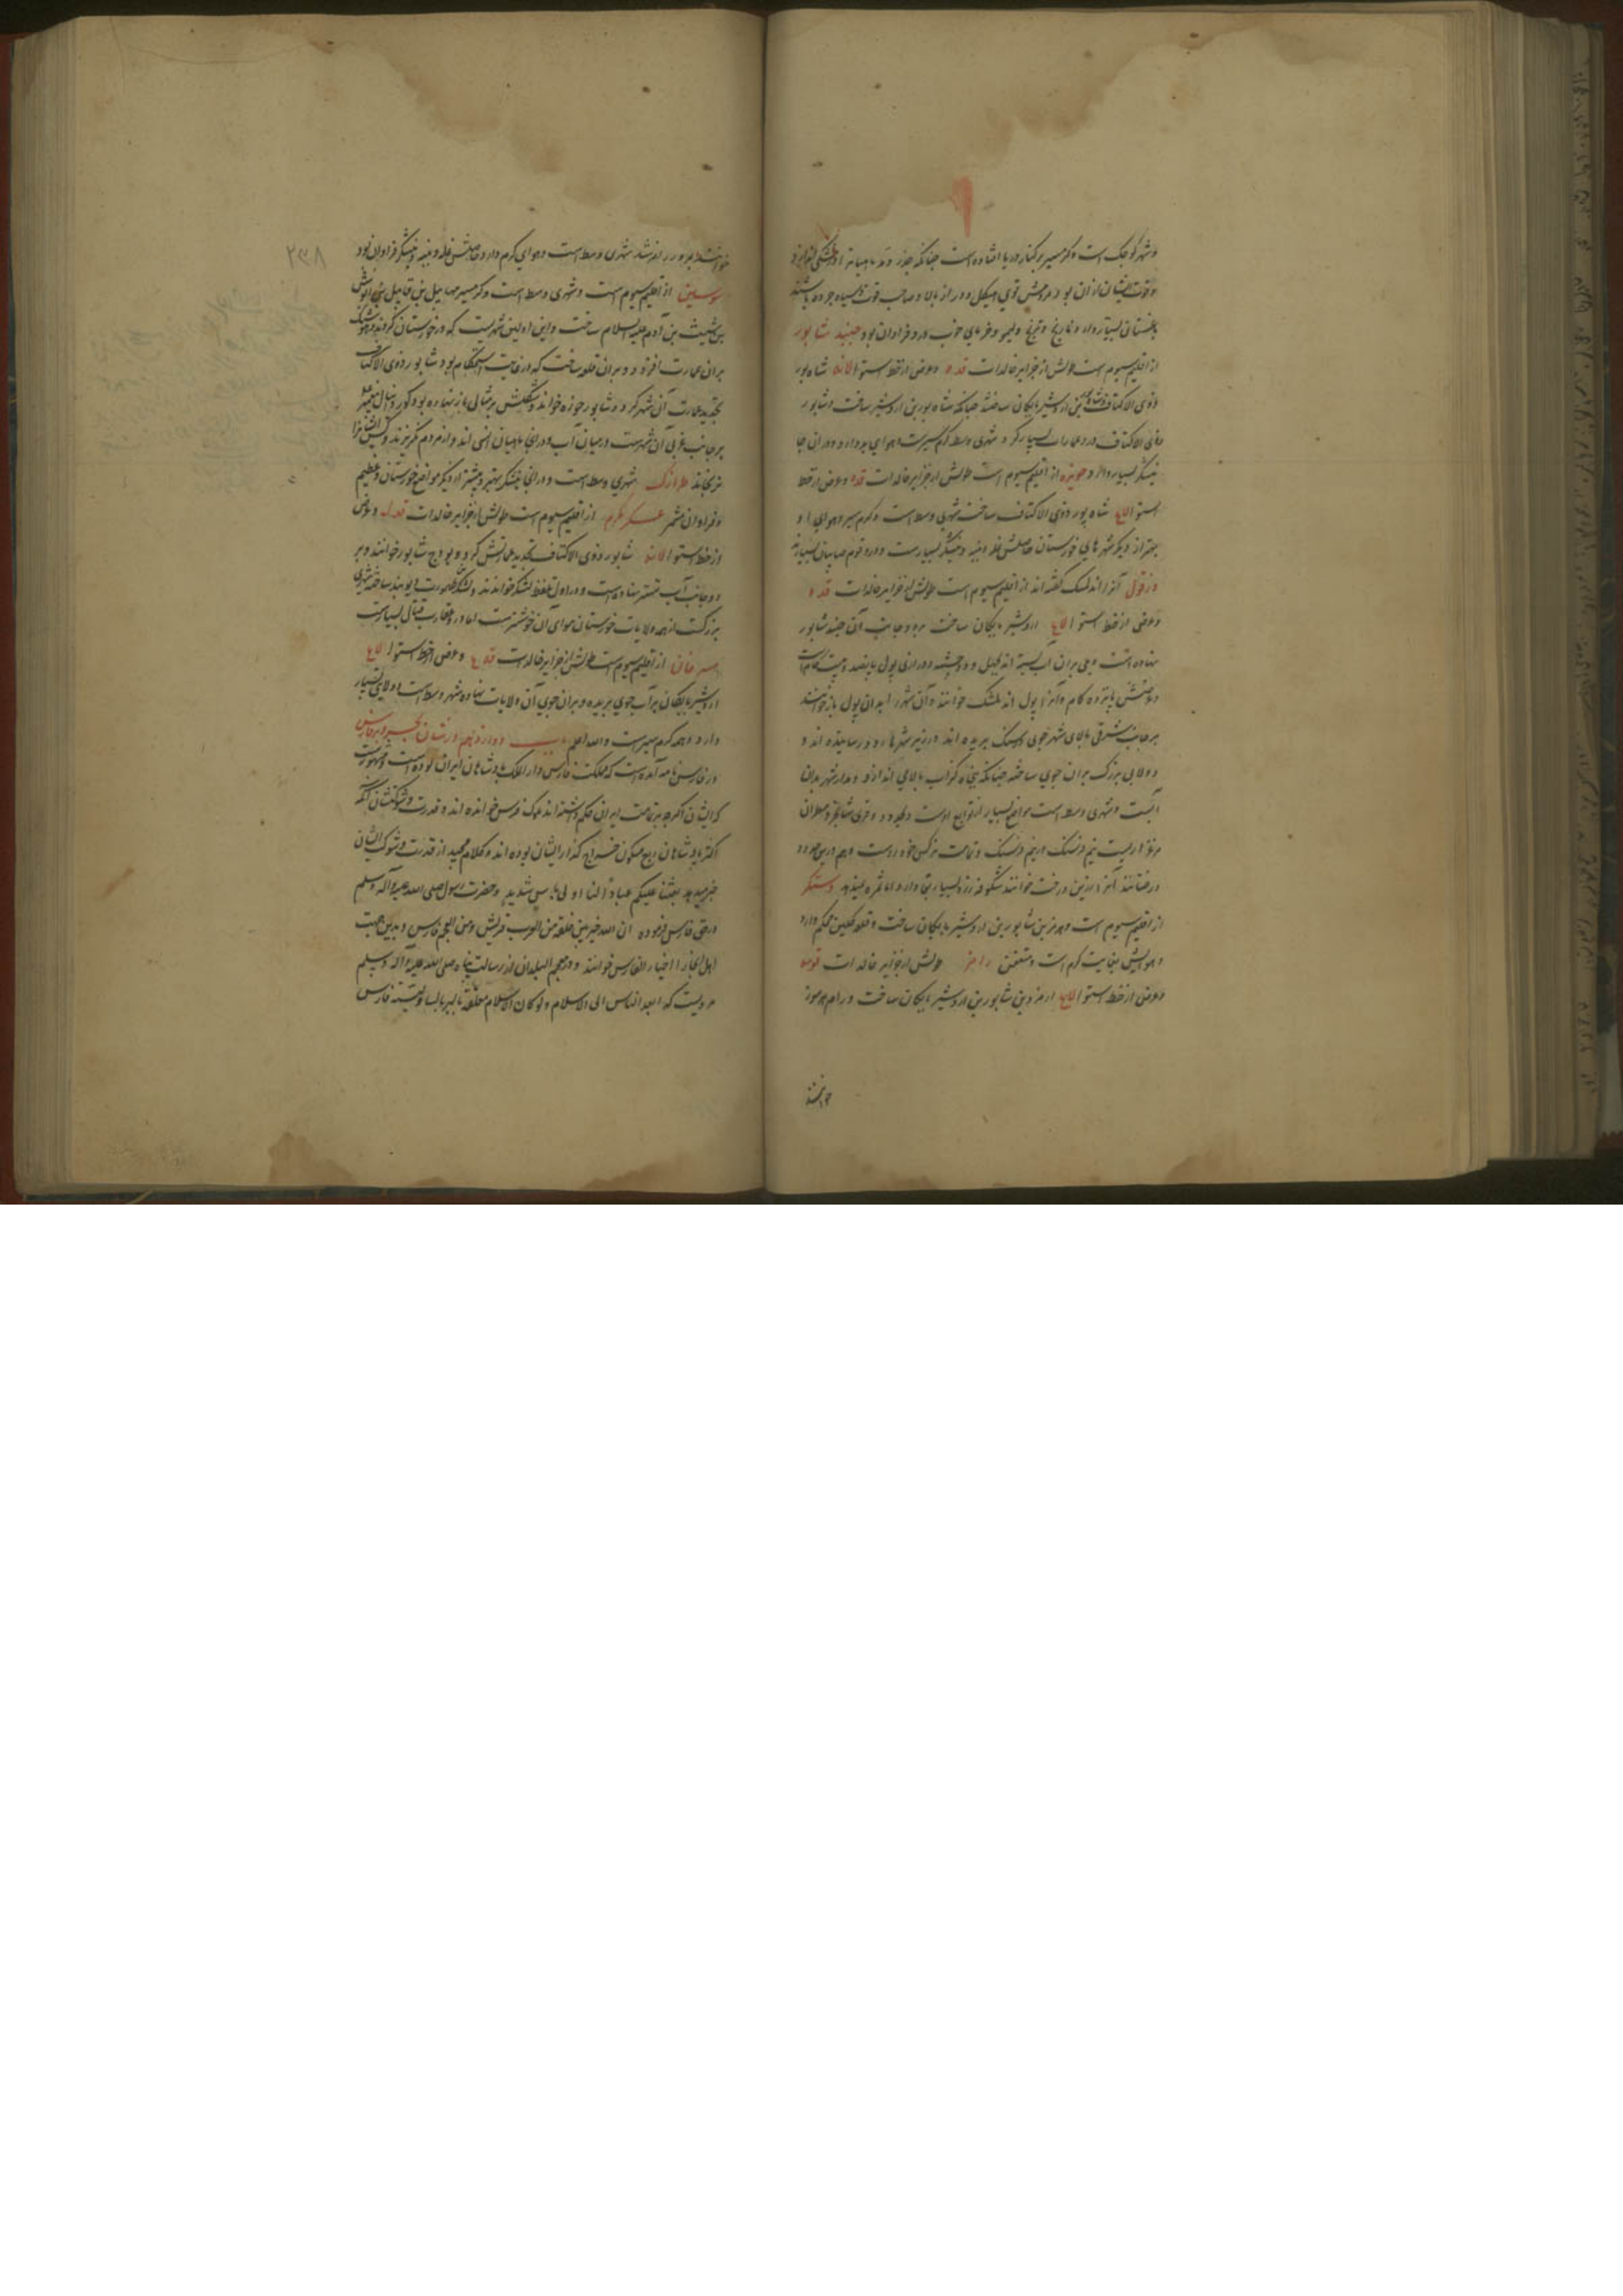 و شهر کوچک است و گرمسیر بر کنار دریا افتاده است چنانکه جذر و مد تا
و قوت ایشان از آن بود مردمش قوی هیکل و دراز بالا و صاحب قوت و سیاه چرده باشند
نخلستان بسیار دارد و نارنج و ترنج و لیمو و خرمای خوب درو فراوان بود جنید شاپور
از اقلیم سیوم است طولش از جزایر خالدات قده و عرض از خط استوا لانه شاه پور
ذوی الاکتاف بن اردشیر بابکان ساخت چنانکه شاه پور بن اردشیر ساخت و شاپور
ذوی الاکتاف درو عمارات بسیار کرد شهری وسط گرمسیرست و هوای بد دارد و در آن جا
نیشکر بسیار دارد حویزه از اقلیم سیوم است طولش از جزایر خالدات قده و عرض از خط
استوا لایه شاه پور ذوی الاکتاف ساخت شهری وسط است و گرم سیر و هوای او
بهتر از دیگر شهرهای خوزستان حاصلش غله و پنبه و نیشکر بسیارست و درو قوم صابیان بسیارند
دزفول آنرا اندلمشک گفته اند از اقلیم سیوم است طولش از جزایر خالدات قده
و عرض از خط استوا لایه اردشیر بابکان ساخت بر دو جانب آب جند شاپور
نهاده است و پلی بر آن آب بسته اند چهل و دو چشمه درازی پول پانصد و بیست گام است
و عرضش پانزده گام و آنرا پول اندلمشک خوانند و آن شهر را بدان پول باز خوانند
بر جانب شرقی بالای شهر جوی در سنگ بریده اند و در زیر شهر با رود رسانیده اند و
دولابی بزرگ بر آن جوی ساخته چنانکه پنجاه گز آب بالا می اندازد و مدار شهر بدان
آبست و شهری وسط است مواضع بسیار از توابع اوست
مرغزاریست نیم فرسنگ در نیم فرسنگ و تمامت نرگس خود روست و هم درین حدود
درختانند آنرا ارزین درخت خوانند شکوفه زرد بسیار بقا دارد اما ثمره ندهد دستگر
از اقلیم سیوم است هرمز بن شاپور بن اردشیر بابکان ساخت و قلعه گلین محکم دارد
و هوایش بغایت گرم است و متعفن رامز طولش از جزایر خالدات
و عرض از خط استوا لایه هرمز بن شاپور بن اردشیر بابکان ساخت و رام هرموز
خوانند
۲۳۸
خوانند شهری وسط است و هوای گرم دارد حاصلش غله و پنبه و نیشکر فراوان بود
سوس از اقلیم سیوم است و شهری وسط است و گرمسیر مهاییل بن قاییل بن انوش
بن شیث بن آدم علیه السلام ساخت و این اولین شهریست که در خوزستان کردند و هوشنگ
بر آن عمارت افزود و بر آن قلعه ساخت که در غایت استحکام بود شاپور ذوی الاکتاف
تجدید عمارت آن شهر کرد و شاپور خوزه خواند و شکلش بر مثال باز نهاده بود و گور دانیال پیغمبر
بر جانب غربی آن شهرست در میان آب و در آنجا ماهیان انسی اند و از مردم نگریزند و کس ایشانرا
نرنجاند طرازک شهری وسط است و در آنجا نیشکر بهتر و بیشتر از دیگر مواضع خوزستان و عظیم
و فراوان شمر عسکر مکرم از اقلیم سیوم است طولش از جزایر خالدات قدله و عرض
از خط استوا لانه شاپور ذوی الاکتاف تجدید عمارتش کرد و برج شاپور خوانند و بر
دو جانب آب تستر نهاده است و در اول بلفظ لشکر خواندند و لشکر طهمورث دیوبند ساخته شهری
بزرگست از همه ولایات خوزستان هوای آن خوشترست اما درو عقارب قتال بسیارست
مسرقان از اقلیم سیوم است طولش از جزایر خالدات قدیه و عرض از خط استوا لایه
اردشیر بابکان بر آب جوی بریده و بر آن جوی آن ولایات نهاده شهر وسط است و ولایتی بسیار
دارد و همه گرم سیر است و الله اعلم باب دوازدهم در شان بحر و بر فارس
در فارس نامه آمده است که مملکت فارس دار الملک پادشاهان ایران بوده است و مشهورست
که ایشان اگرچه بر تمامت ایران حکم داشته اند ملوک فرس خوانده اند و قدرت و شوکتشان آنکه
اکثر پادشاهان ربع مسکون خراج گذار ایشان بوده اند و کلام مجید از قدرت و شوکت ایشان
خبر میدهد بعثنا علیکم عبادا لنا اولی باس شدید و حضرت رسول صلی الله علیه و آله و سلم
در حق فارس فرموده ان الله خیر بین خلقه من العرب قریش و من العجم فارس و بدین جهت
اهل آنجا را اخیار الفارس خوانند و در معجم البلدان از رسالت پناه صلی الله علیه و آله و سلم
مرویست که ابعد الناس الی الاسلام و لو کان الاسلام معلقه بالثریا لتناولته فارس